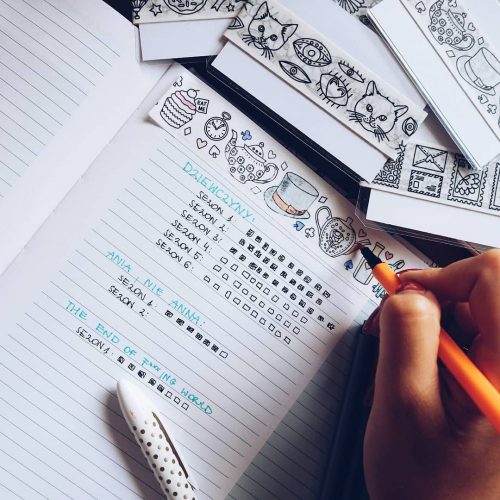 EAT ME
DZIEWCZYNY:
SEZON 1:
SEZON 2:
SEZON 3:
SEZON 4:
SEZON 5:
SEZON 6:
ANIA NIE ANNA:
SEZON 1:
SEZON 2:
THE END OF F***ING WORLD
SEZON 1: